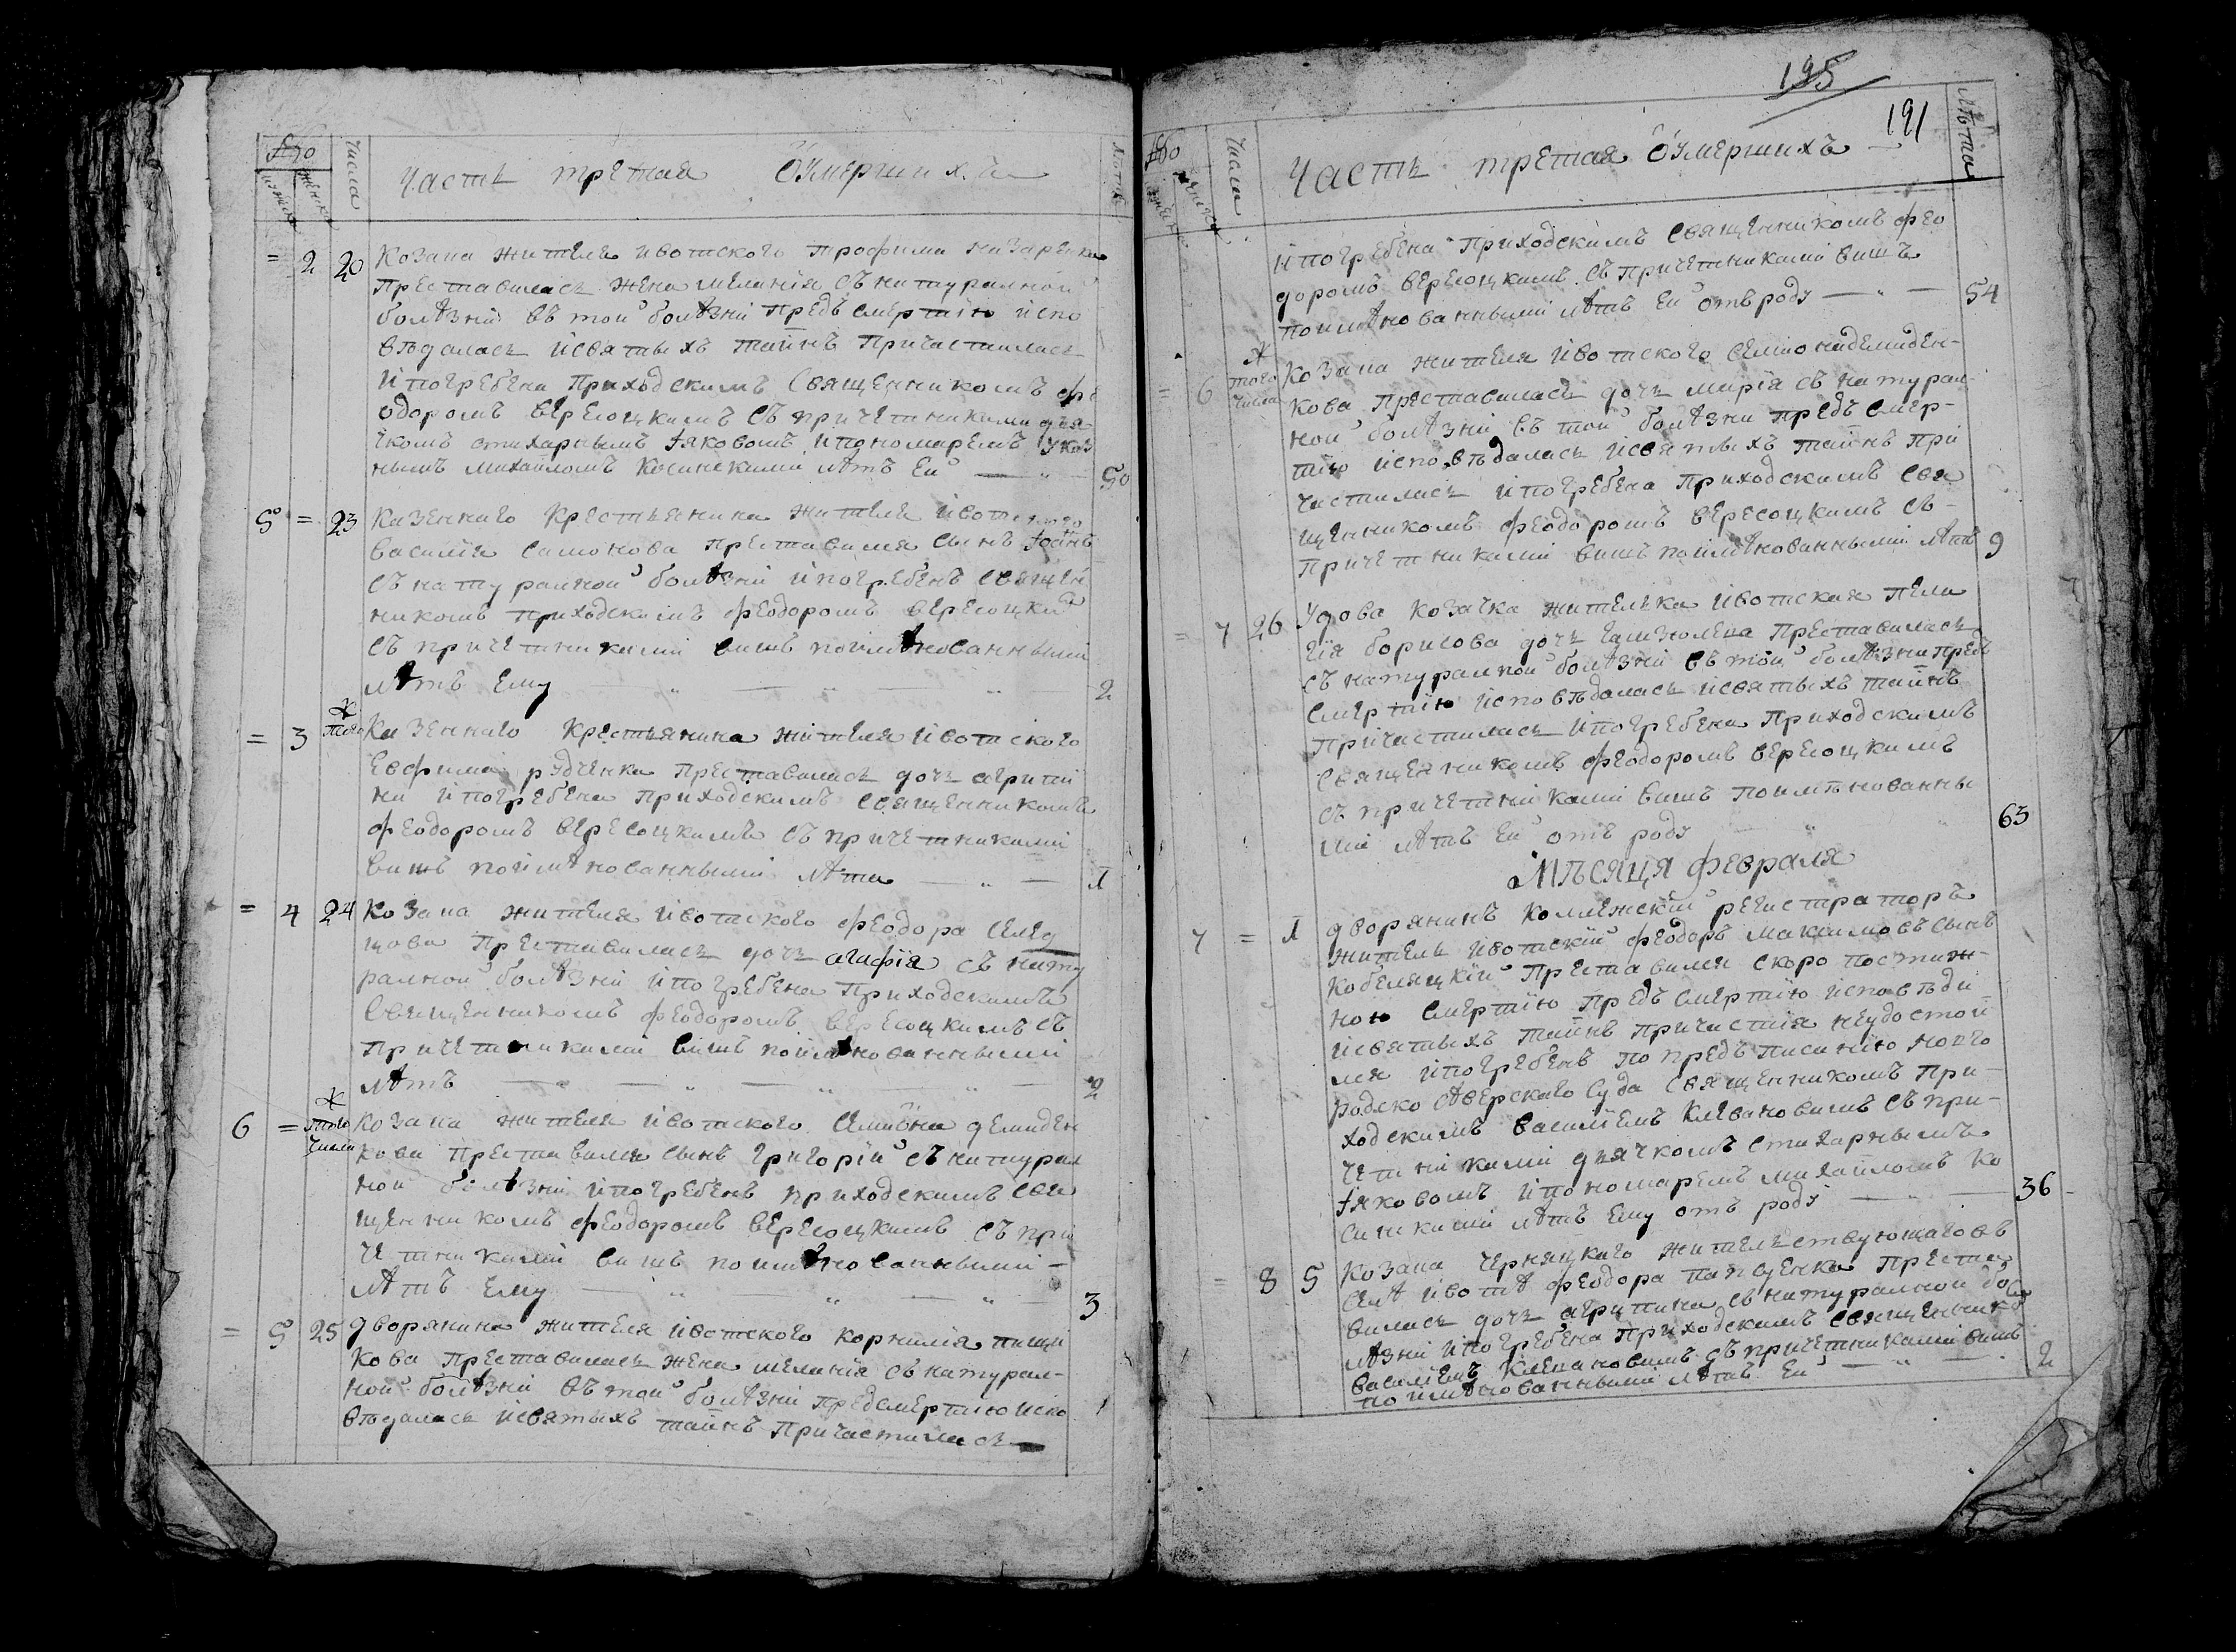 Числа
Часть третая Оумершихъ
= 2 20 Козака жителя ивотского трофима назаренка
преставилась жена меланія съ натуралной
болѣзни въ той болѣзни предъ смертію испо
вѣдалась и святыхъ таинъ причастилась
и погребена приходскимъ священникомъ фе
одоромъ вересоцкимъ съ причетниками дья
чкомъ стихарнымъ Іяковомъ и пономаремъ указ
нымъ михайломъ косинскими лѣтъ Ей 50
5 = 23 Казенного крестьянина жителя ивотского
василія самонова преставился сынъ Іоанъ
съ натуралной болѣзни и погребенъ священ
никомъ приходскимъ феодоромъ вересоцким
съ причетниками вишъ поимѣнованными
лѣтъ Ему 2
= 3 того Казенного крестьянина жителя ивотского
Евфима рудченка преставилась дочь агрипи
на и погребена приходскимъ священникомъ
феодоромъ вересоцкимъ съ причетниками
вишъ поимѣнованными лѣта 1
= 4 24 Козака жителя ивотского феодора
преставилась дочь агафія съ нату
ралной болѣзни и погребена приходскимъ
священникомъ феодоромъ вересоцкимъ съ
причетниками вишъ поимѣнованными
лѣтъ 2
6 = того числа Козака жителя ивотского Симиона демиден
кова преставился сынъ григорій съ натурал
ной болѣзни и погребенъ приходскимъ свя
щенникомъ феодоромъ вересоцкимъ съ при
четниками вишъ поимѣнованными
лѣтъ Ему 3
= 5 25 дворянина жителя ивотского корнилія пищи
кова преставилась жена меланія съ натурал-
ной болѣзни въ той болѣзни предсмертію испо
вѣдалась и святыхъ таинъ причастилась
195
191
Числа
Лѣта
Часть третая Оумершихъ
и погребена приходскимъ священникомъ фео
доромъ вересоцкимъ съ причетниками вишъ
поимѣнованными лѣтъ Ей отъ роду 54
= 6 того числа Козака жителя ивотского симиона демиден-
кова преставилась дочь марія съ натурал
ной болѣзни въ той болѣзни предъ смер-
тію исповѣдалась и святыхъ таинъ при
частилась и погребена приходскимъ свя
щенникомъ феодоромъ вересоцкимъ съ-
причетниками вишъ поимѣнованными лѣтъ 9
= 7 26 Удова козачка жителька ивотская пела
гія борисова дочь преставилась
съ натуралной болѣзни въ той болѣзни предъ
смертію исповѣдалась и святыхъ таинъ
причастилась и погребена приходскимъ
священникомъ феодоромъ вересоцкимъ
съ причетниками вишъ поимѣнованны
ми лѣтъ Ей отъ роду 63
Мѣсяця февраля
7 = 1 дворянинъ коллежскій регистраторъ
житель ивотскій феодоръ максимовъ сынъ
кобеляцкій преставился скоро постиж-
ною смертію предъ смертію исповѣди
и святыхъ таинъ причастія неудостои
лся и погребенъ по предъписанію новго
родско сѣверскаго суда священникомъ при-
ходскимъ василіемъ клевановимъ съ при-
четниками дьячкомъ стихарнымъ
Іяковомъ и пономаремъ михайломъ ко
синскими лѣтъ Ему отъ роду 36
= 8 5 Козака черняцкого жительствующаго въ
селѣ ивотѣ феодора преста
вилась дочь агрипина съ натуралной бо
лѣзни и погребена приходскимъ священникомъ
василіемъ клевановимъ съ причетниками вишъ
поимѣнованными лѣтъ Ей 2